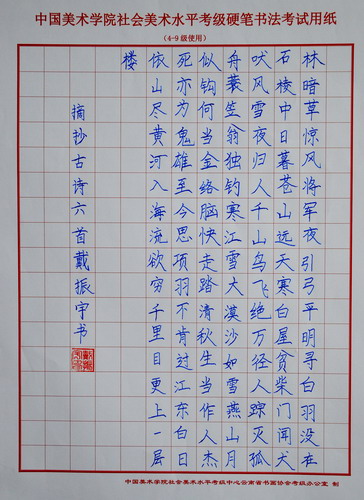 中国美术学院社会美术水平考级硬笔书法考试用纸
（4-9级使用）
林暗草惊风将军夜引弓平明寻白羽没在
石棱中日暮苍山远天寒白屋贫柴门闻犬
吠风雪夜归人千山鸟飞绝万径人踪灭孤
舟蓑笠翁独钓寒江雪大漠沙如雪燕山月
似钩何当金络脑快走踏清秋生当作人杰
死亦为鬼雄至今思项羽不肯过江东白日
依山尽黄河入海流欲穷千里目更上一层
楼
摘抄古诗六首戴振宇书
中国美术学院社会美术水平考级中心云南省书画协会考级办公室 制